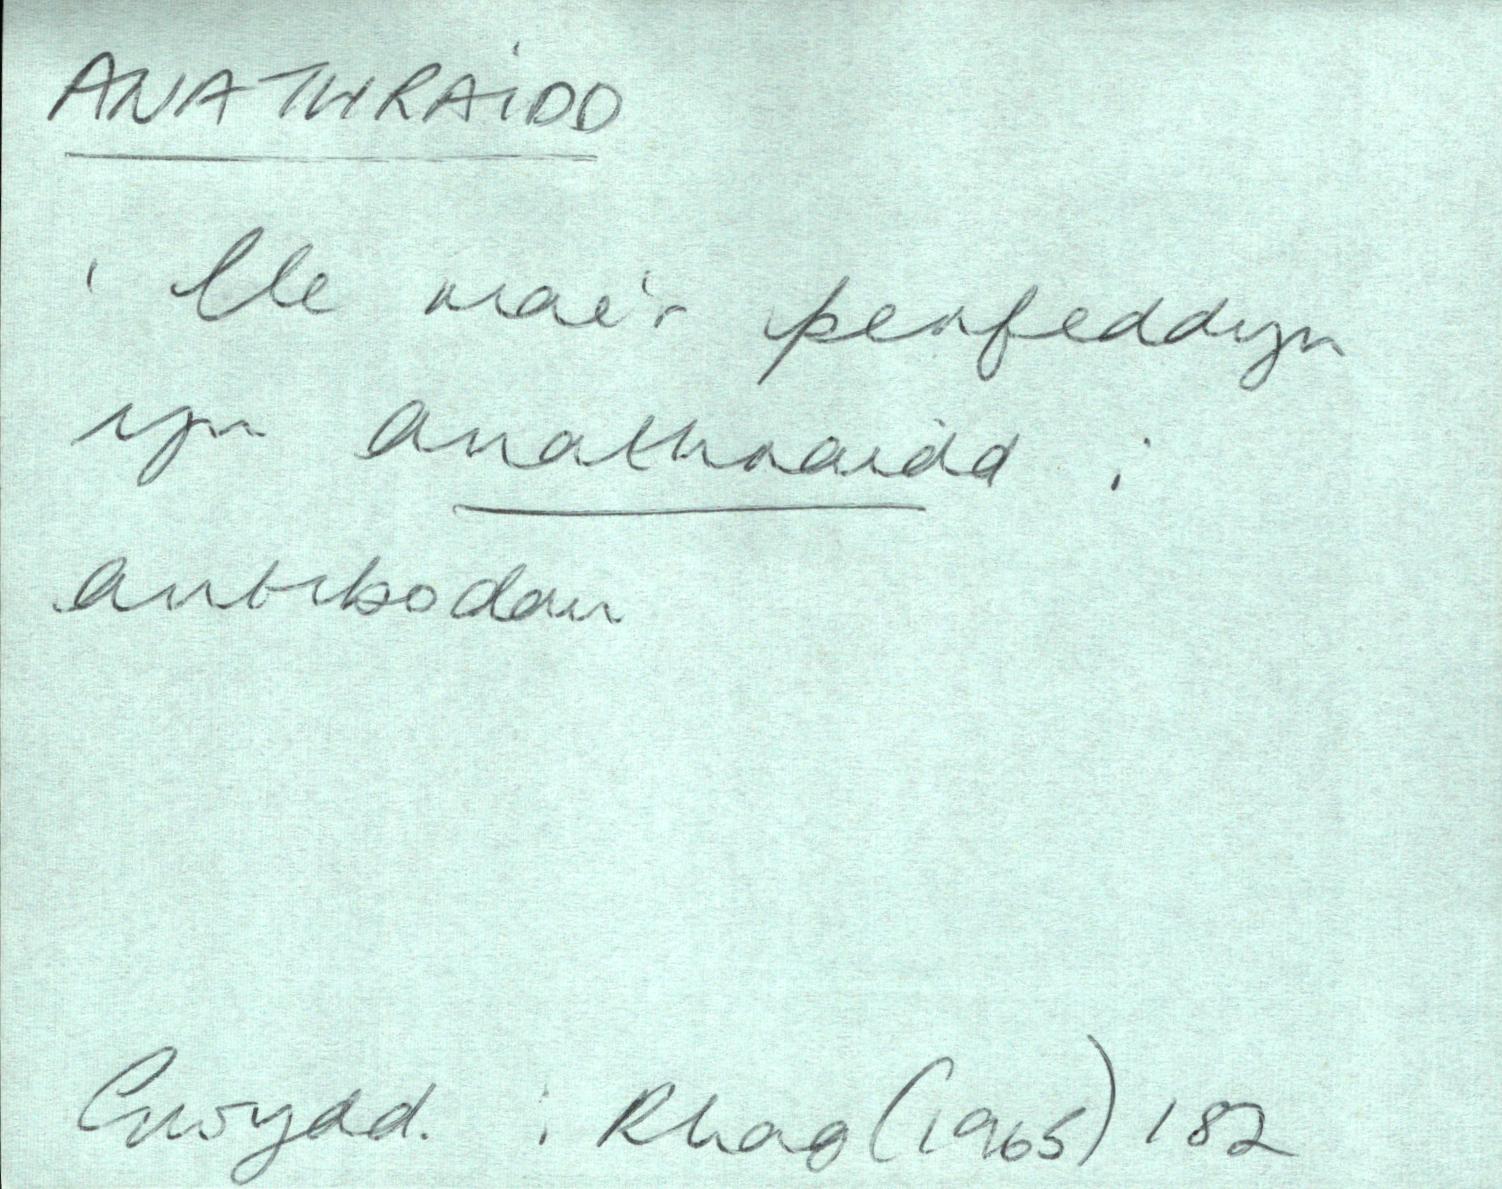 ANATHRAIDD
' lle mae'r perfeddyn
yn anathraidd i
antibodau
Gwydd. i Rhag (1965) 182